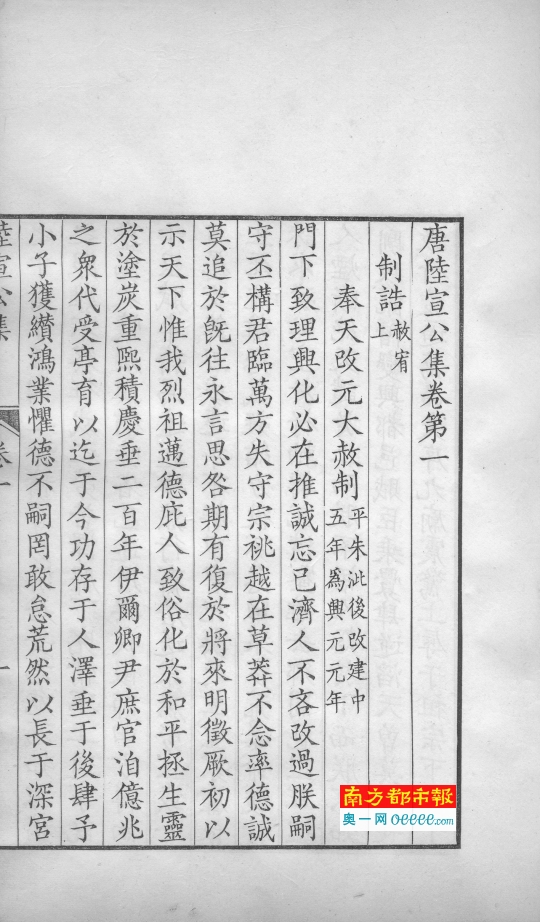 唐陸宣公集卷第一
制誥 赦宥上
奉天改元大赦制 平朱泚後改建中五年爲興元元年
門下致理興化必在推誠忘己濟人不吝改過朕嗣
守丕構君臨萬方失守宗祧越在草莽不念率德誠
莫追於旣往永言思咎期有復於將來明徵厥初以
示天下惟我烈祖邁德庇人致俗化於和平拯生靈
於塗炭重熙積慶垂二百年伊爾卿尹庶官洎億兆
之衆代受亭育以迄于今功存于人澤垂于後肆予
小子獲纘鴻業懼德不嗣罔敢怠荒然以長于深宮
陸宣公集 卷一 一
南方都市報
奥一网 oeeee.com